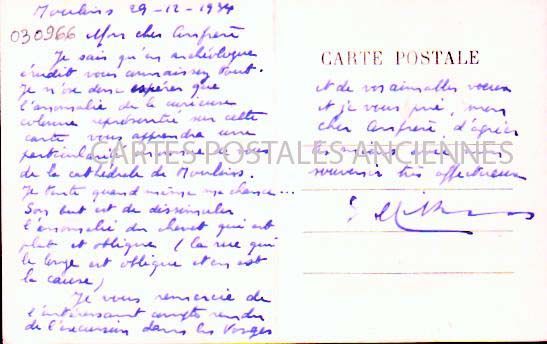 Moulins 29-12-1934
030966 Mon cher Confrère
Je sais qu'en archéologue
érudit vous connaissez tout.
Je n'ose donc espérer que
l'anomalie de la curieuse
colonne représentée sur cette
carte vous apprendra une
particularité de vous
de la cathédrale de Moulins.
Je tente quand même ma chance...
Son but est de dissimuler
l'anomalie du chevet qui est
plat et oblique (la rue qui
le longe est oblique et en est
la cause)
Je vous remercie de
l'intéressant compte rendu
de l'excursion dans les Vosges
CARTE POSTALE
et de vos aimables voeux
et je vous prie, mon
cher Confrère, d'agréer
souvenir très affectueux
CARTES POSTALES ANCIENNES